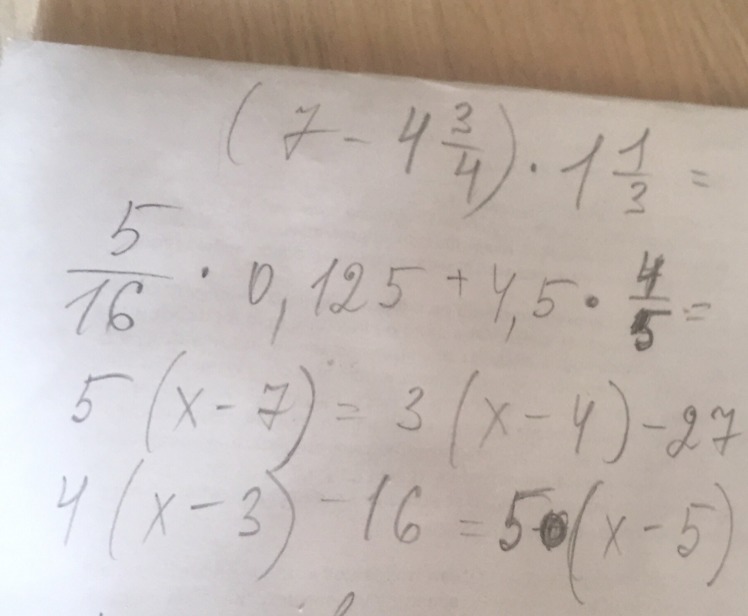 (7 - 4 3/4) · 1 1/3 =
5/16 · 0,125 + 4,5 · 4/5 =
5 (x - 7) = 3 (x - 4) - 27
4 (x - 3) - 16 = 5 (x - 5)